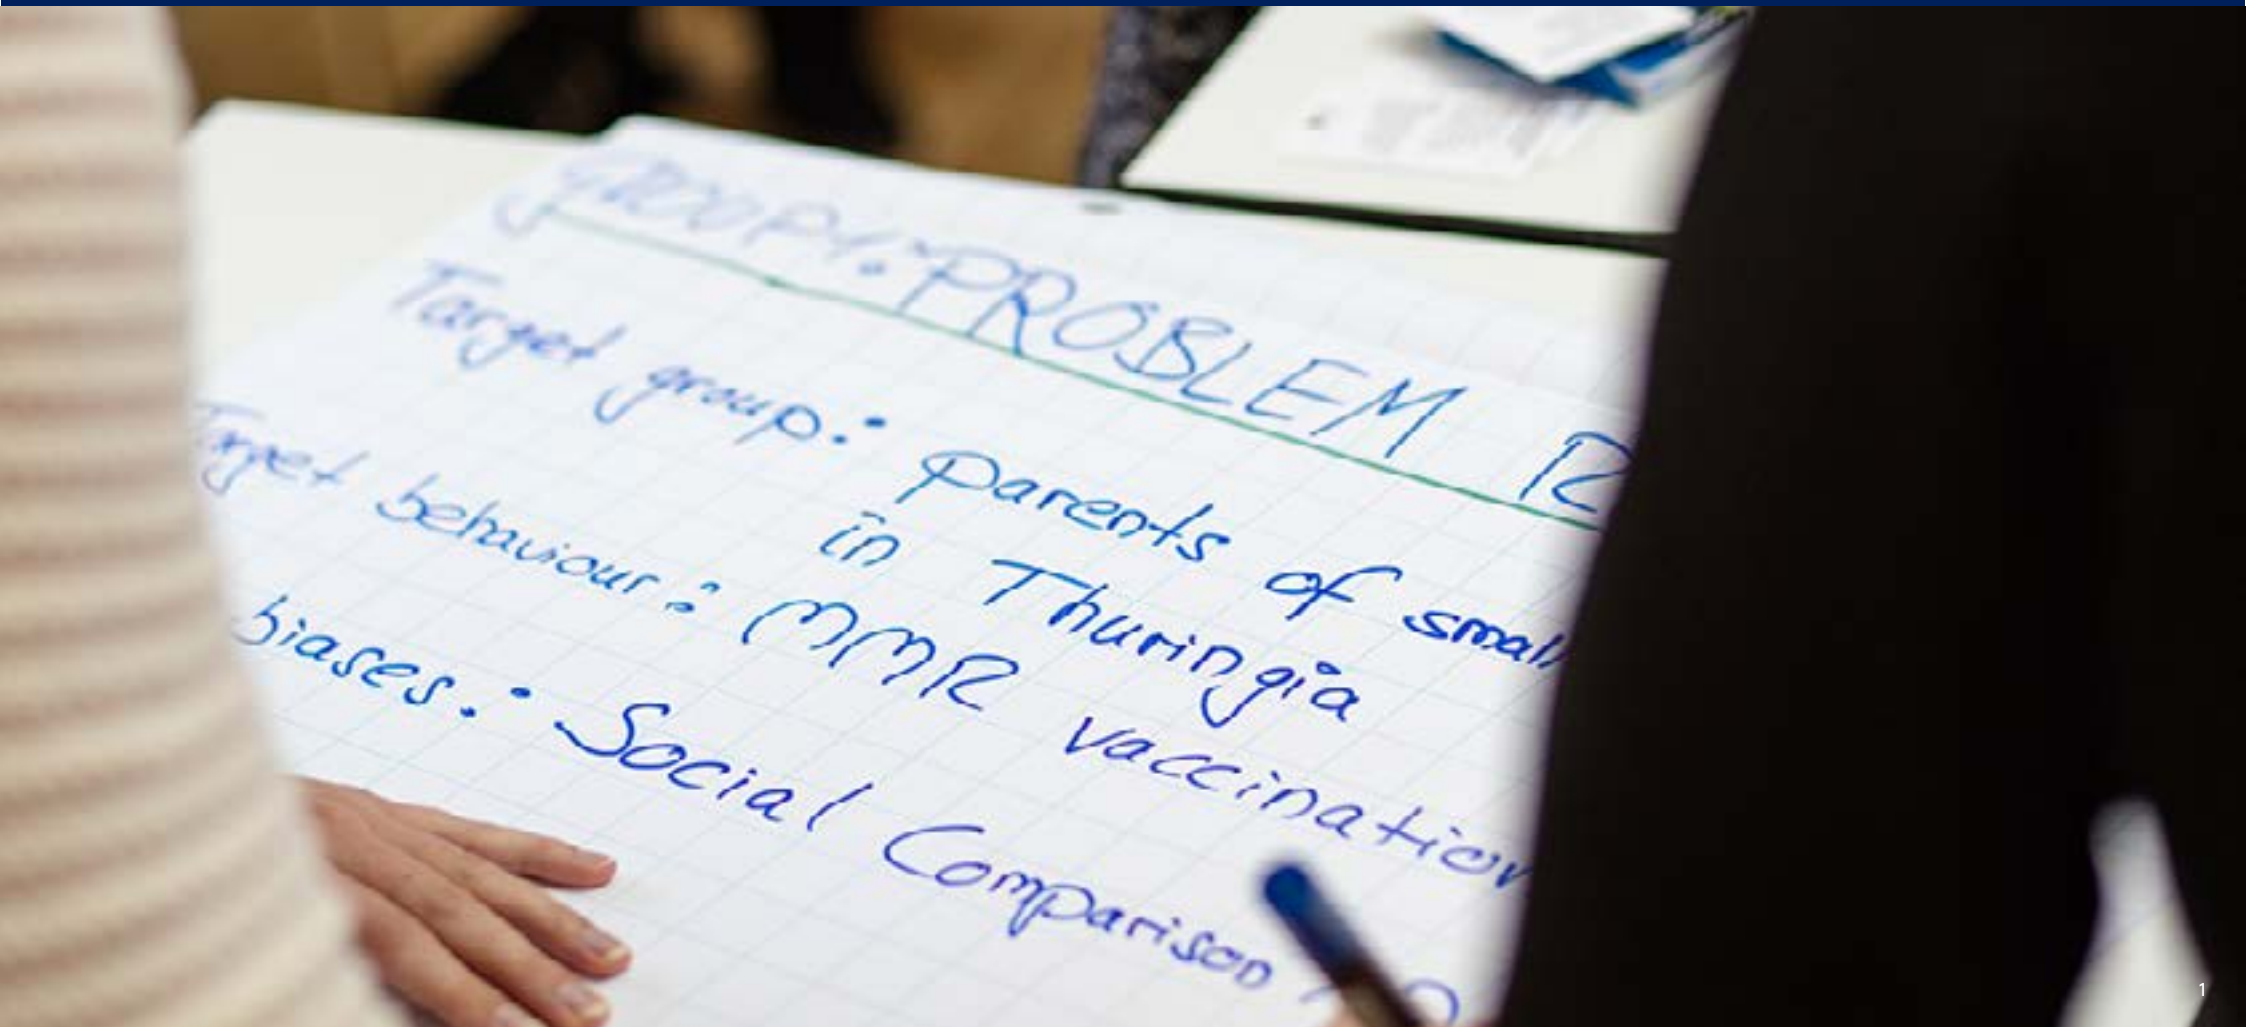 PROBLEM R
Target group: parents of small
in Thuringia
Target behaviour: MMR vaccination
biases: Social Comparison
1